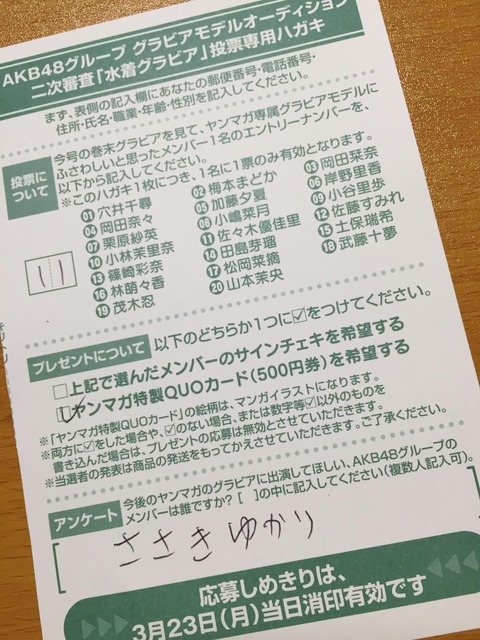 AKB48グループ グラビアモデルオーディション
二次審査「水着グラビア」投票専用ハガキ
まず、表側の記入欄にあなたの郵便番号・電話番号・
住所・氏名・職業・年齢・性別を記入してください。
投票に
ついて
今号の巻末グラビアを見て、ヤンマガ専属グラビアモデルに
ふさわしいと思ったメンバー1名のエントリーナンバーを、
以下から記入してください。
※このハガキ1枚につき、1名に1票のみ有効となります。
01 穴井千尋 02 梅本まどか 03 岡田栞奈
04 岡田奈々 05 加藤夕夏 06 岸野里香
07 栗原紗英 08 小嶋菜月 09 小谷里歩
10 小林茉里奈 11 佐々木優佳里 12 佐藤すみれ
13 篠崎彩奈 14 田島芽瑠 15 土保瑞希
16 林萌々香 17 松岡菜摘 18 武藤十夢
19 茂木忍 20 山本茉央
11
プレゼントについて 以下のどちらか1つに☑をつけてください。
□上記で選んだメンバーのサインチェキを希望する
☑ヤンマガ特製QUOカード(500円券)を希望する
※「ヤンマガ特製QUOカード」の絵柄は、マンガイラストになります。
※両方に☑をした場合や、☑のない場合、または数字等☑以外のものを
書き込んだ場合は、プレゼントの応募は無効とさせていただきます。ご了承ください。
※当選者の発表は商品の発送をもってかえさせていただきます。
アンケート 今後のヤンマガのグラビアに出演してほしい、AKB48グループの
メンバーは誰ですか?[ ]の中に記入してください(複数人記入可)。
ささきゆかり
応募しめきりは、
3月23日(月)当日消印有効です